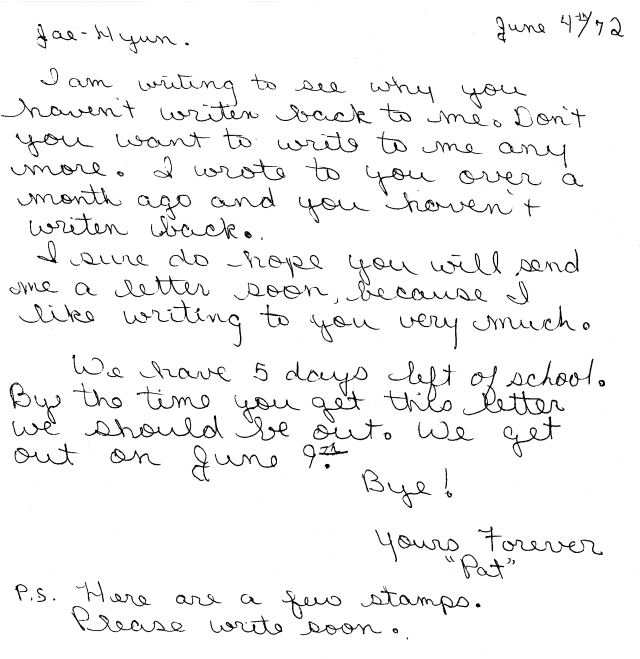 June 4th/72
Jae-Hyun.
I am writing to see why you
haven't writen back to me. Don't
you want to write to me any
more. I wrote to you over a
month ago and you haven't
writen back.
I sure do hope you will send
me a letter soon, because I
like writing to you very much.
We have 5 days left of school.
By the time you get this letter
we should be out. We get
out on June 9th.
Bye!
Yours Forever
"Pat"
P.S. Here are a few stamps.
Please write soon.